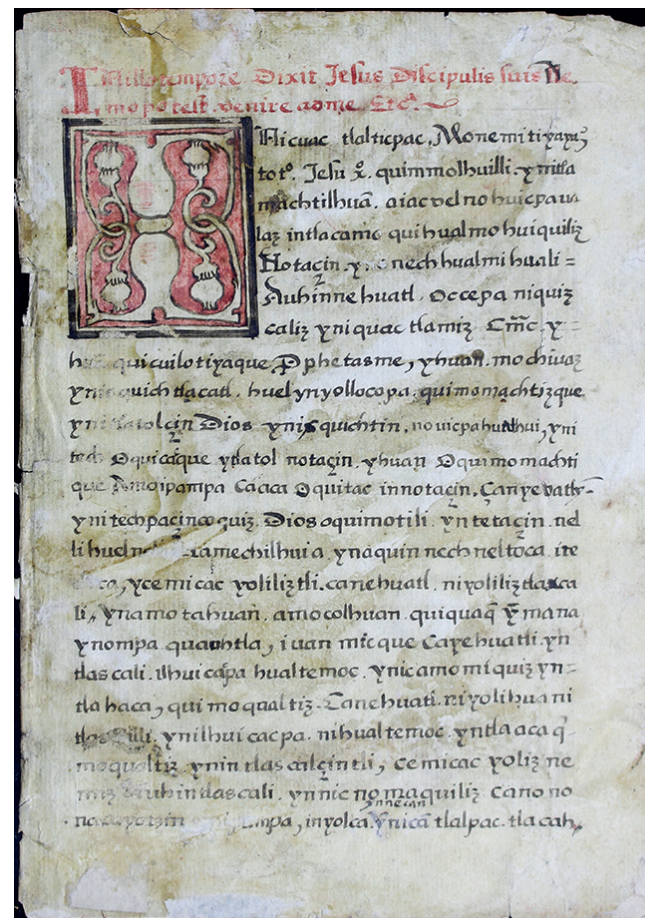 In illo tempore Dixit Jesus Discipulis suis Ne
mo potest venire adme. Etcª.
Hicuac tlalticpac, Monemitiyaya,
totº. Jesu xº. quimmolhuilli. ynitla
machtilhuã. aiac vel no huicpa ua
laz intlacamo quihualmohuiquiliz
Notaçin. yno nechhualmihuali =
Auhinnehuatl. Occepa niquiz
caliz yniquac tlamiz. y
quicuilotiyaque, Pphetasme, yhuan. mochiuaz
ynixquich tlacatl. huelynyollocopa. quimomachtizque
yni tlatolçin Dios ynisquichtin. no uicpahualhui, yni
tech Oquicaque ytlatol notaçin. yhuan Oquimomachti
que Amoipampa Cacaca Oquitac innotaçin. Çanyevatl
ynitechpaçinco quiz. Dios oquimotili. yn tetaçin. nel
lihuel namechilhuia ynaquin nechneltoca. ite
ycemicac yoliliztli. canehuatl. niyoliliztlaxca
li, ynamotahuan. amocolhuan. quiquaq̃ yẽ mana
ynompa quauhtla, iuan micque Cayehuatli. yn
tlascali. ilhuicacpa hualtemoc. ynicamomiquiz yn=
tlahaca, quimoqualtiz. Canehuatl. niyolihuani
tlascalli. ynilhuicacpa. nihualtemoc. yntlaacaq̃
moqualtiz ynin tlascalçintli, cemicac yoliz ne
Auhin tlascali. ynnic nomaquiliz Canono
inyolca, ynnecan ynicã tlalpac. tlacah,